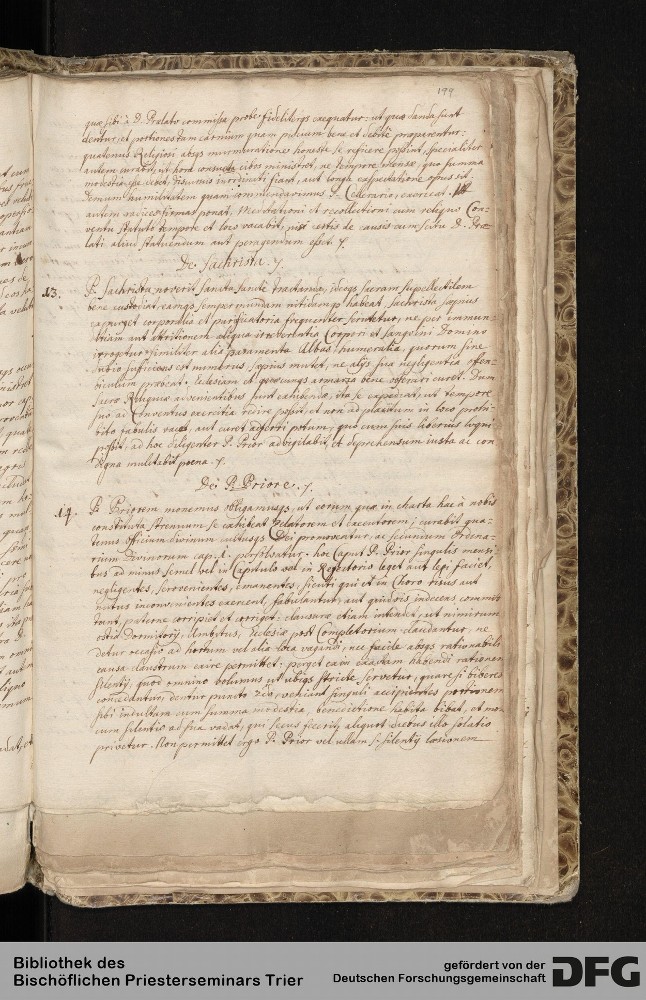 199
quæ sibi à D. Prælato commissa probe fideliterqs exequatur: ut quæ danda sunt
dentur, et portiones tam carnium quam piscium bene et debite præparentur:
quatenus Religiosi absqs murmuratione honeste se reficere possint, specialiter
autem curabit, ut hora consueta cibos ministret, ne tempore mensæ, quo summa
modestia esse debet, discursus inordinati fiant, aut longa expectatione opus sit.
Demum humilitatem quam commendavimus P. Cellerario, exerceat.
autem radices firmas ponat, Meditationi et recollectioni cum reliquo Con-
ventu statuto tempore et loco vacabit, nisi certis de causis cum scitu D. Præ-
lati aliud statuendum aut peragendum esset.
De Sachrista.
13. P. Sachrista noverit sancta sancte tractanda, ideoqs sacram supellectilem
bene custodiat, eamqs semper mundam nitidamqs habeat. Sachrista sæpius
expurget corporalia et purificatoria frequenter scrutetur, ne per immun-
ditiam aut attritionem aliqua irreverentia Corpori et sanguini Domini
irrogetur similiter alia paramenta Albas humeralia, quorum sine
dubio sufficiens est numerus, sæpius mutet, ne alijs sua negligentia offen-
diculum præbeat. Ecclesiam et armaria bene observari curet. Dum
sacræ Reliquiæ advenientibus sunt exhibendæ, ita se expediat, ut tempore
suo ad Conventus exercitia redire possit, et non ad placitum in loco prohi-
bito fabulis vacet, aut curet adferri potum, quo cum suis liberius loqui
possit, ad hoc diligenter P. Prior advigilabit, et deprehensum iusta ac con
digna mulctabit poena.
De P. Priore.
14. P. Priorem monemus obligamusqs, ut eorum quæ in charta hac à nobis
constituta strenuum se exhibeat Zelatorem et executorem; curabit qua-
tenus officium divinum cultusqs Dei promoveatur, ac secundum Ordina-
rium Divinorum cap. 1. persolvatur. hoc Caput P. Prior singulis mensi-
bus ad minus semel vel in Capitulo vel in Refectorio leget aut legi faciet,
negligentes, sero venientes, emanentes, sicuti qui et in Choro risus aut
nutus inconvenientes exercent, fabulantur, aut quidvis indecens commit-
tant, paterne corripiet et corriget. clausuræ etiam intendet, ut nimirum
ostia Dormitorij, Ambitus, Ecclesiæ post Completorium claudantur, ne
detur occasio ad hortum vel alia loca vagandi, nec facile absqs rationabili
causa claustrum exire permittet: perget eam exactam habendi rationem
silentij, quod omnino volumus ut ubiqs stricte servetur, quare si bibere
concedantur, dentur puncto 2da, veniant singuli accipientes portionem
sibi intultam cum summa modestia, benedictione habita bibat, et mox
cum silentio ad sua vadat, qui secus fecerit, aliquot diebus illo solatio
privetur. Non permittet ergo P. Prior vel ullam silentij læsionem
Bibliothek des
Bischöflichen Priesterseminars Trier
gefördert von der
Deutschen Forschungsgemeinschaft
DFG